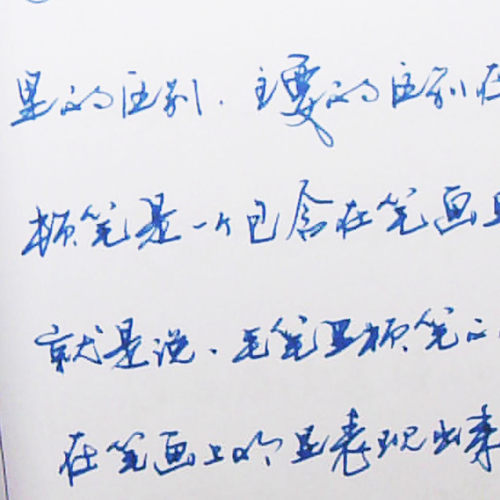 显的区别.主要的区别在
顿笔是一个包含在笔画
就是说、毛笔里顿笔的
在笔画上明显表现出来